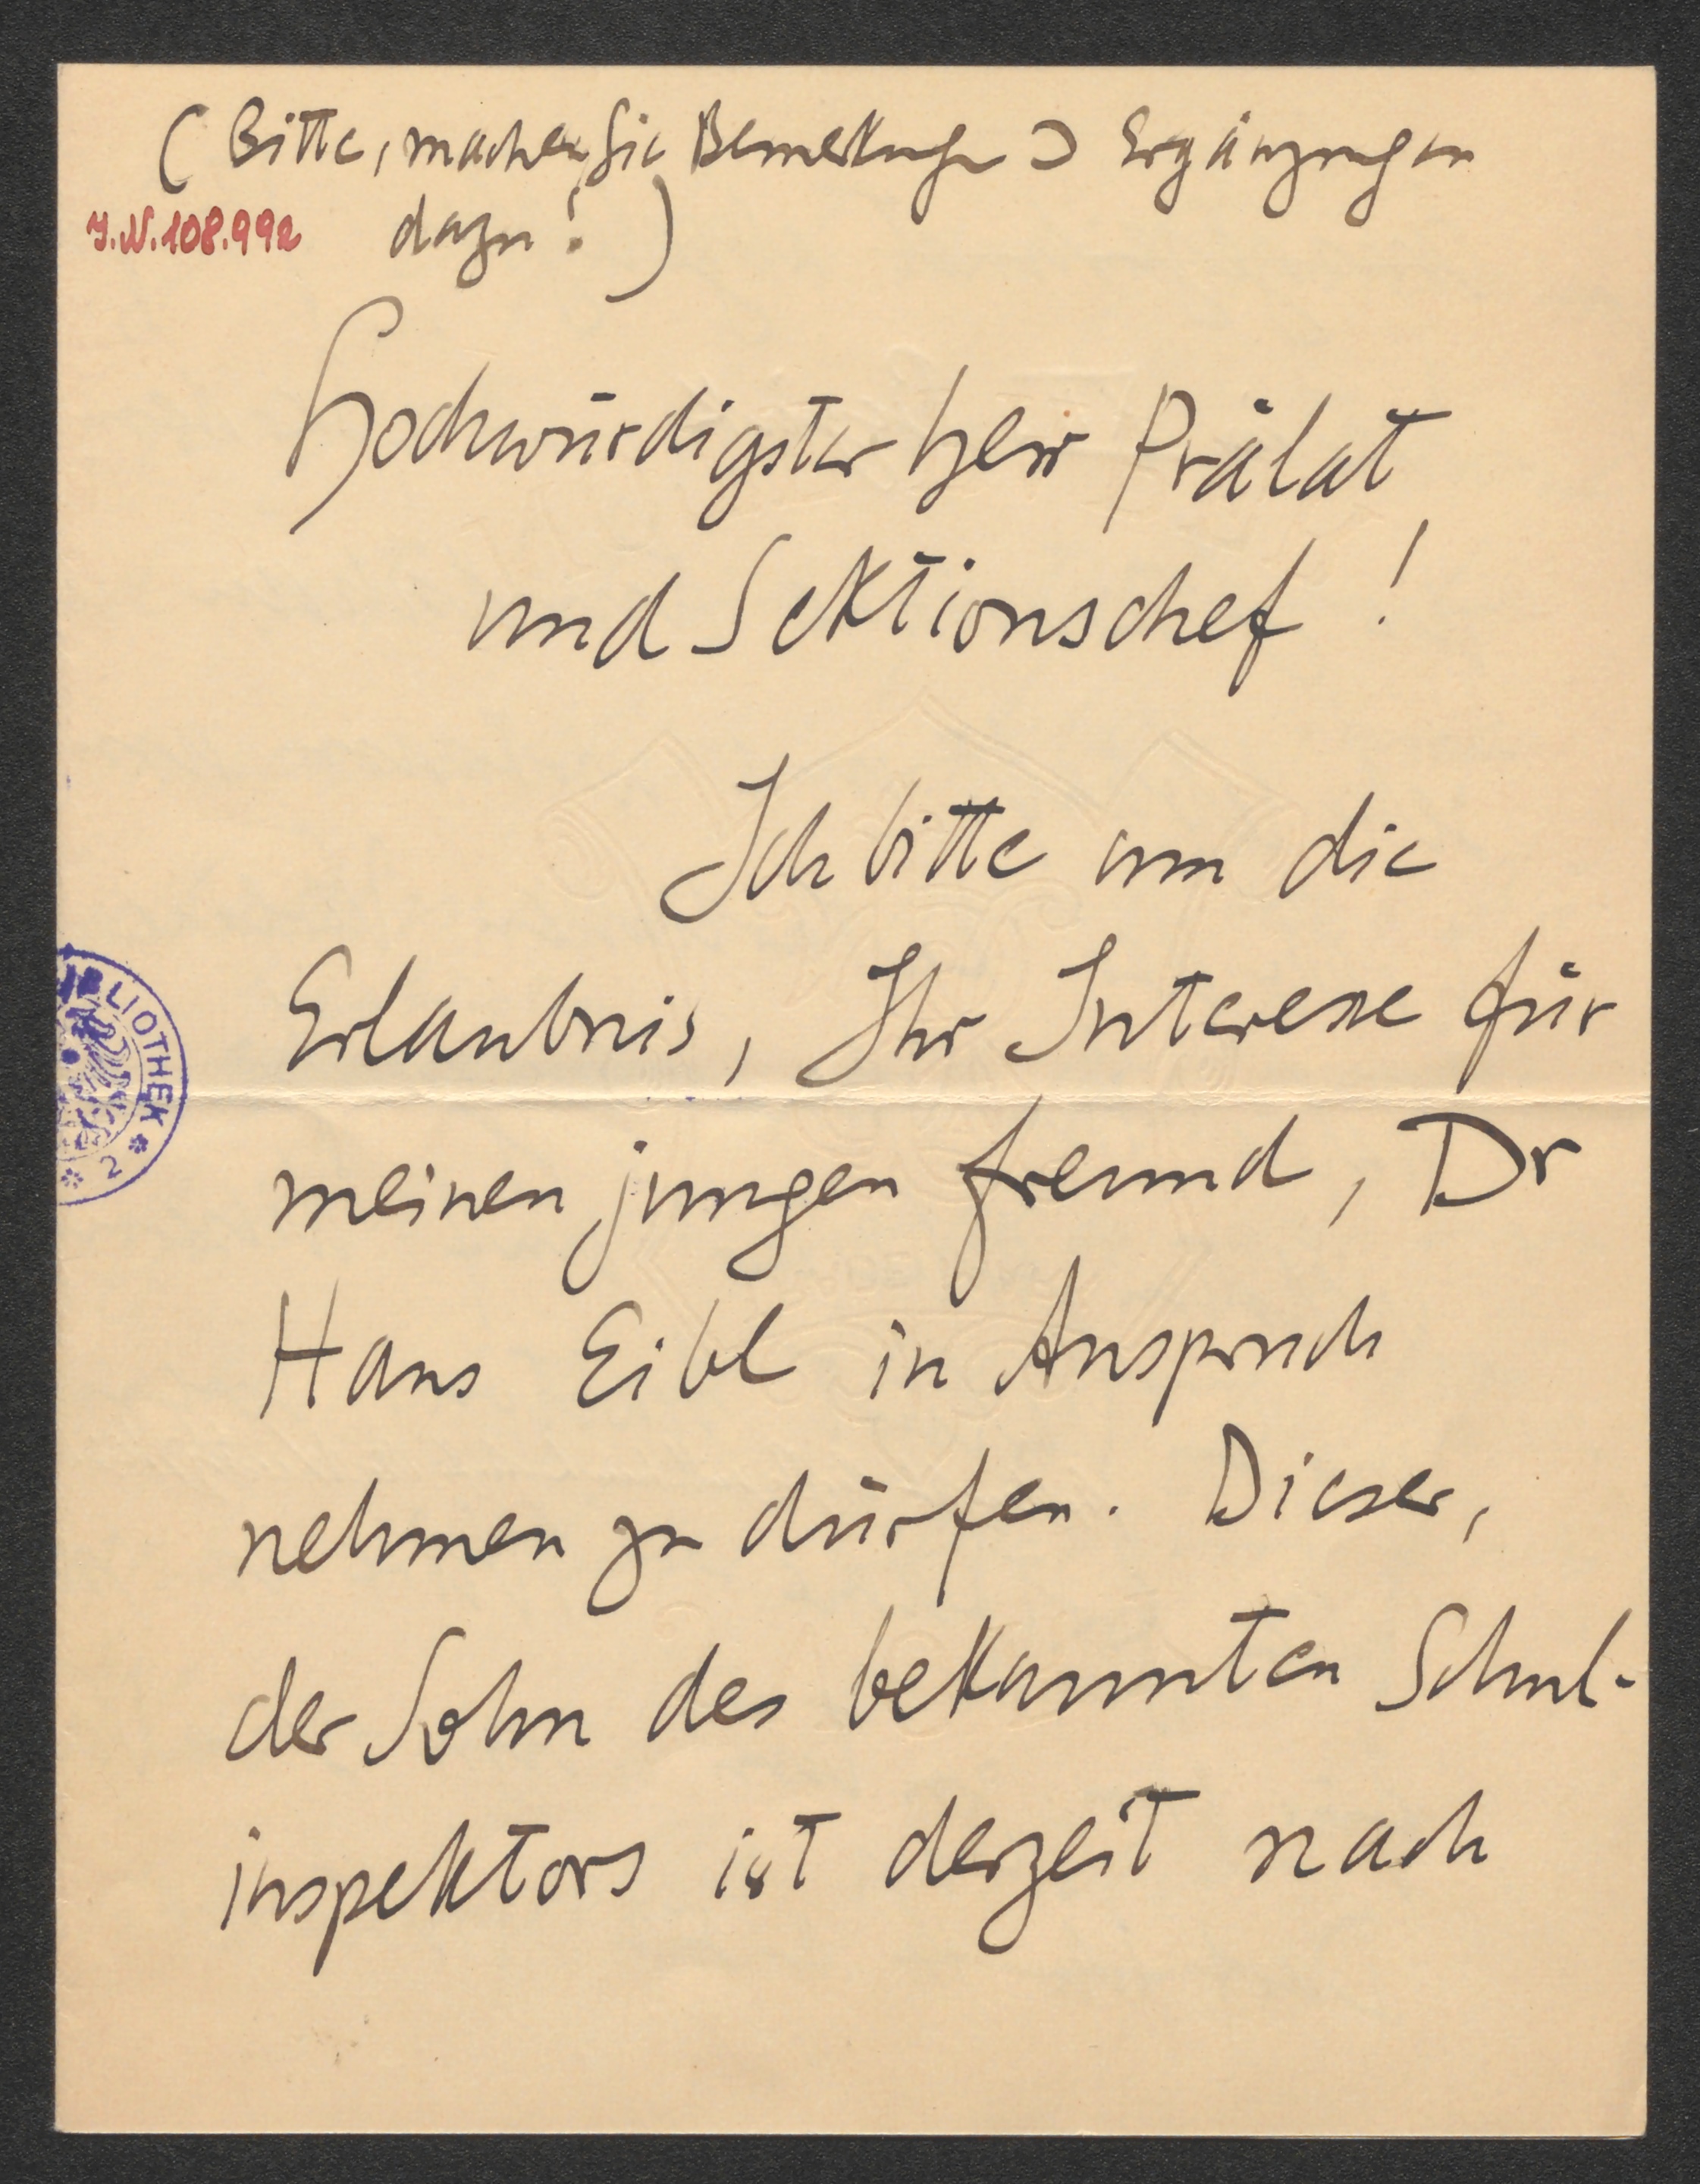 ( Bitte, machen Sie Bemerkungen Ergänzungen
J.N.108.992 dazu! )
Hochwürdigster Herr Prälat
und Sektionschef !
Ich bitte um die
Erlaubnis, Ihr Interesse für
meinen jungen Freund, Dr
Hans Eibl in Anspruch
nehmen zu dürfen. Dieser,
der Sohn des bekannten Schul-
inspektors ist derzeit nach
BLIOTHEK * 2 *